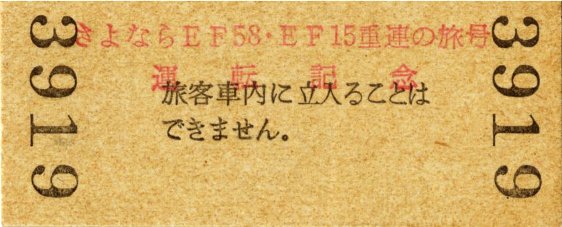 さよならEF58・EF15重連の旅号
運転記念
旅客車内に立入ることは
できません。
3919
3919